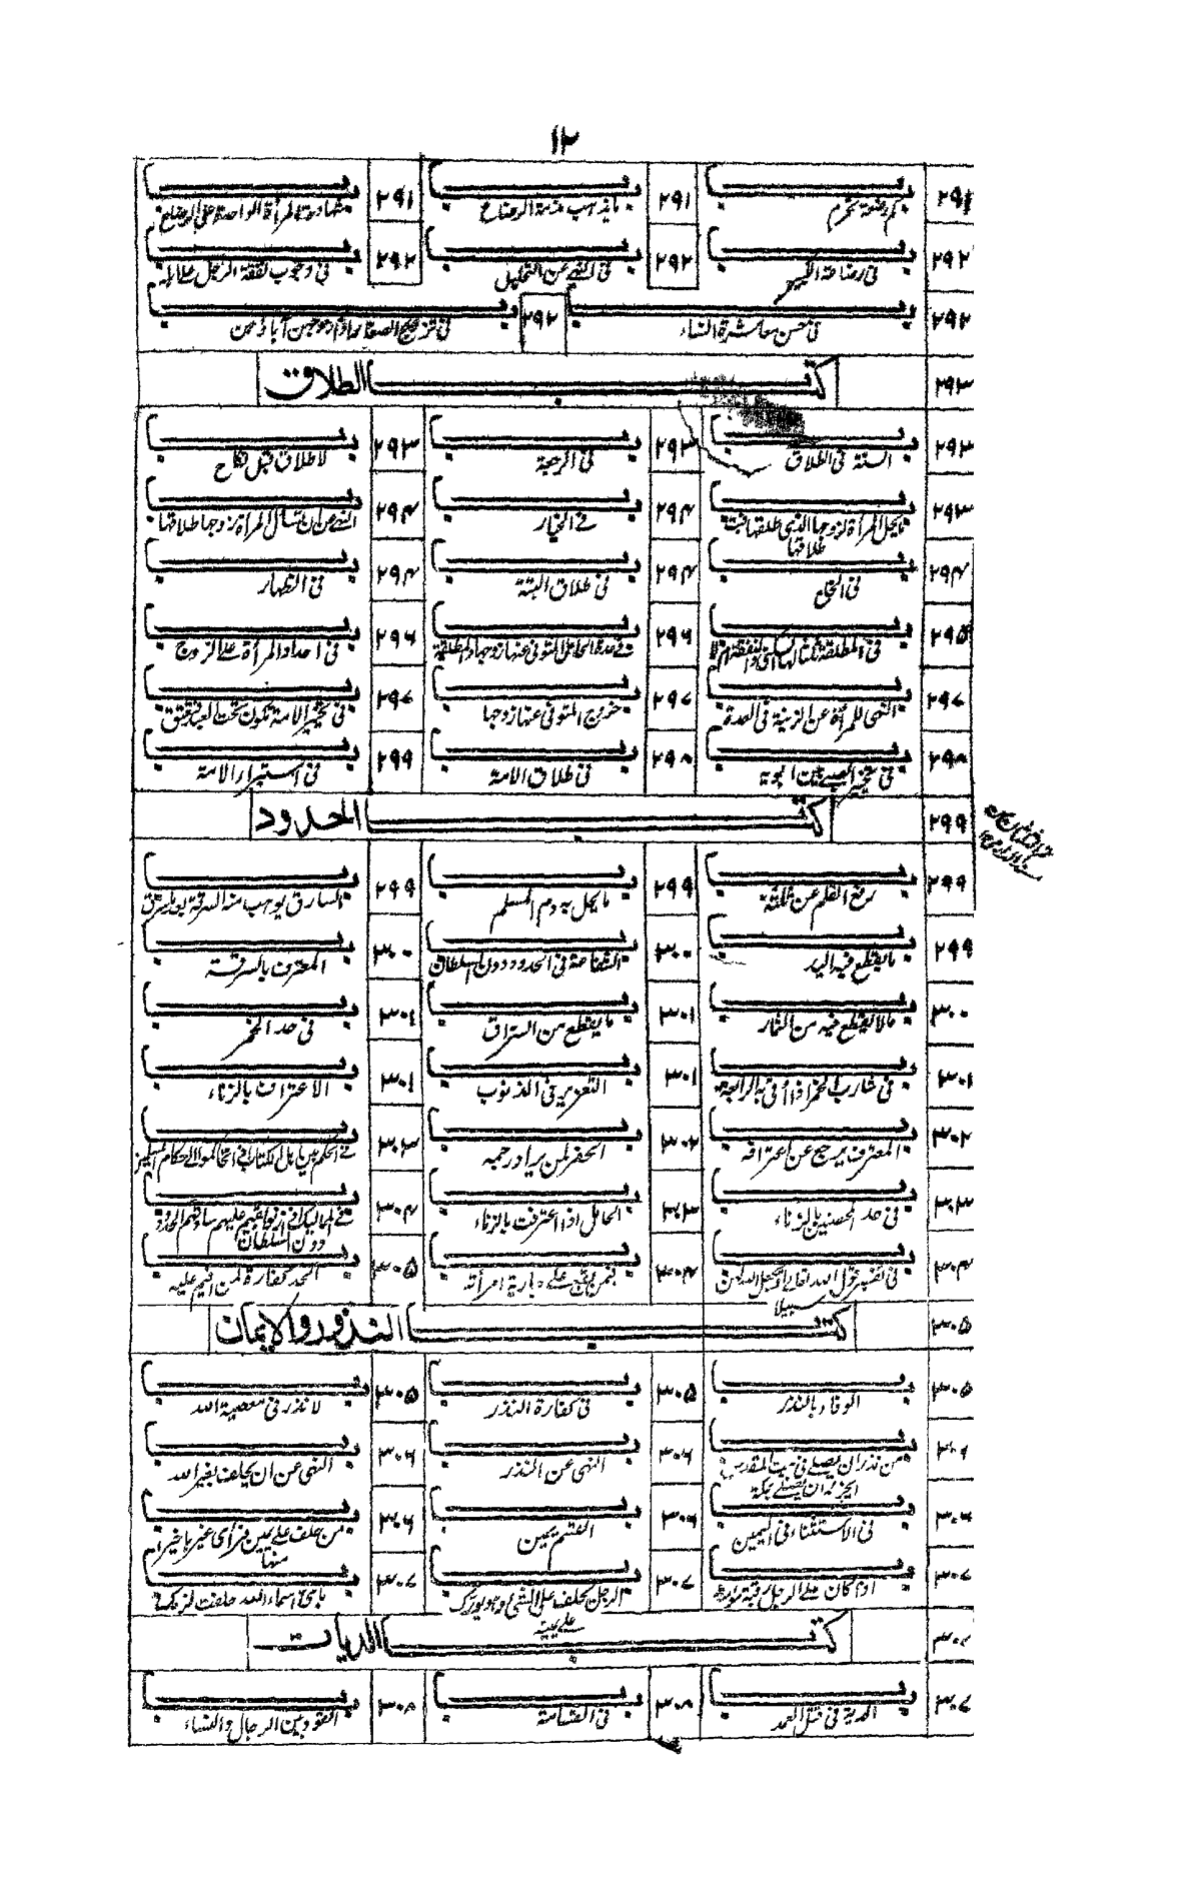 ١٢
٢٩١ باب كم رضعة تحرم ٢٩١ باب ما يذهب مذمة الرضاع ٢٩١ باب شهادة المرأة الواحدة على الرضاع
٢٩٢ باب في رضاعة الكبير ٢٩٢ باب في النهي عن التحليل ٢٩٢ باب في وجوب نفقة الرجل على اهله
٢٩٢ باب في حسن معاشرة النساء ٢٩٢ باب في تزويج الصغار اذا زوجهن آباؤهن
٢٩٣ كتاب الطلاق
٢٩٣ باب السنة في الطلاق ٢٩٣ باب في الرجعة ٢٩٣ باب لا طلاق قبل نكاح
٢٩٣ باب ما يحل المرأة لزوجها الذي طلقها فبت طلاقها ٢٩٤ باب في الخيار ٢٩٤ باب النهي عن ان تسأل المرأة زوجها طلاقها
٢٩٤ باب في الخلع ٢٩٤ باب في طلاق البتة ٢٩٤ باب في الظهار
٢٩٥ باب في المطلقة ثلثا لها السكنى والنفقة ام لا ٢٩٦ باب في عدة الحامل المتوفى عنها زوجها والمطلقة ٢٩٦ باب في احداد المرأة على الزوج
٢٩٧ باب النهي للمرأة عن الزينة في العدة ٢٩٧ باب خروج المتوفى عنها زوجها ٢٩٧ باب في تخيير الامة تكون تحت العبد فتعتق
٢٩٨ باب في تخيير الصبي بين ابويه ٢٩٨ باب في طلاق الامة ٢٩٩ باب في استبراء الامة
٢٩٩ كتاب الحدود
٢٩٩ باب رفع القلم عن ثلثة ٢٩٩ باب ما يحل به دم المسلم ٢٩٩ باب السارق يوهب منه السرقة بعد ما سرق
٢٩٩ باب ما يقطع فيه اليد ٣٠٠ باب الشفاعة في الحدود دون السلطان ٣٠٠ باب المعترف بالسرقة
٣٠٠ باب ما لا يقطع فيه من الثمار ٣٠١ باب ما يقطع من السراق ٣٠١ باب في حد الخمر
٣٠١ باب في شارب الخمر اذا اتي به الرابعة ٣٠١ باب التعزير في الذنوب ٣٠١ باب الاعتراف بالزناء
٣٠٢ باب المعترف يرجع عن اعترافه ٣٠٢ باب الحفر لمن يراد رجمه ٣٠٣ باب في الحكم بين اهل الكتاب اذا تحاكموا الى حكام المسلمين
٣٠٣ باب في حد المحصنين بالزناء ٣٠٣ باب الحامل اذا اعترفت بالزناء ٣٠٤ باب في المماليك اذا زنوا يقيم عليهم ساداتهم الحدود دون السلطان
٣٠٤ باب في تفسير قول الله تعالى او يجعل الله لهن سبيلا ٣٠٤ باب فيمن يقع على جارية امرأته ٣٠٥ باب الحد كفارة لمن اقيم عليه
٣٠٥ كتاب النذور والايمان
٣٠٥ باب الوفاء بالنذر ٣٠٥ باب في كفارة النذر ٣٠٥ باب لا نذر في معصية الله
٣٠٦ باب من نذر ان يصلي في بيت المقدس ايجزئه ان يصلي بمكة ٣٠٦ باب النهي عن النذر ٣٠٦ باب النهي عن ان يحلف بغير الله
٣٠٦ باب في الاستثناء في اليمين ٣٠٦ باب القسم يمين ٣٠٦ باب من حلف على يمين فرأى غيرها خيرا منها
٣٠٧ باب اذا كان على الرجل رقبة مؤمنة ٣٠٧ باب الرجل يحلف على الشئ وهو يورك على يمينه ٣٠٧ باب باي اسماء الله حلفت لزمك
٣٠٧ كتاب الديات
٣٠٧ باب الدية في قتل العمد ٣٠٨ باب في القسامة ٣٠٨ باب القود بين الرجال والنساء